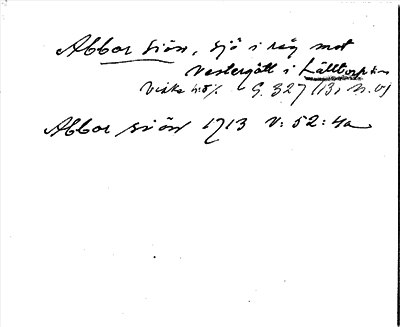 Abborsiön, sjö i räg mot
Västergötl i Källtorps sn
Viske hd. G. 327 (13, n. 0)
Abbor siön 1713 V: 52: 4a